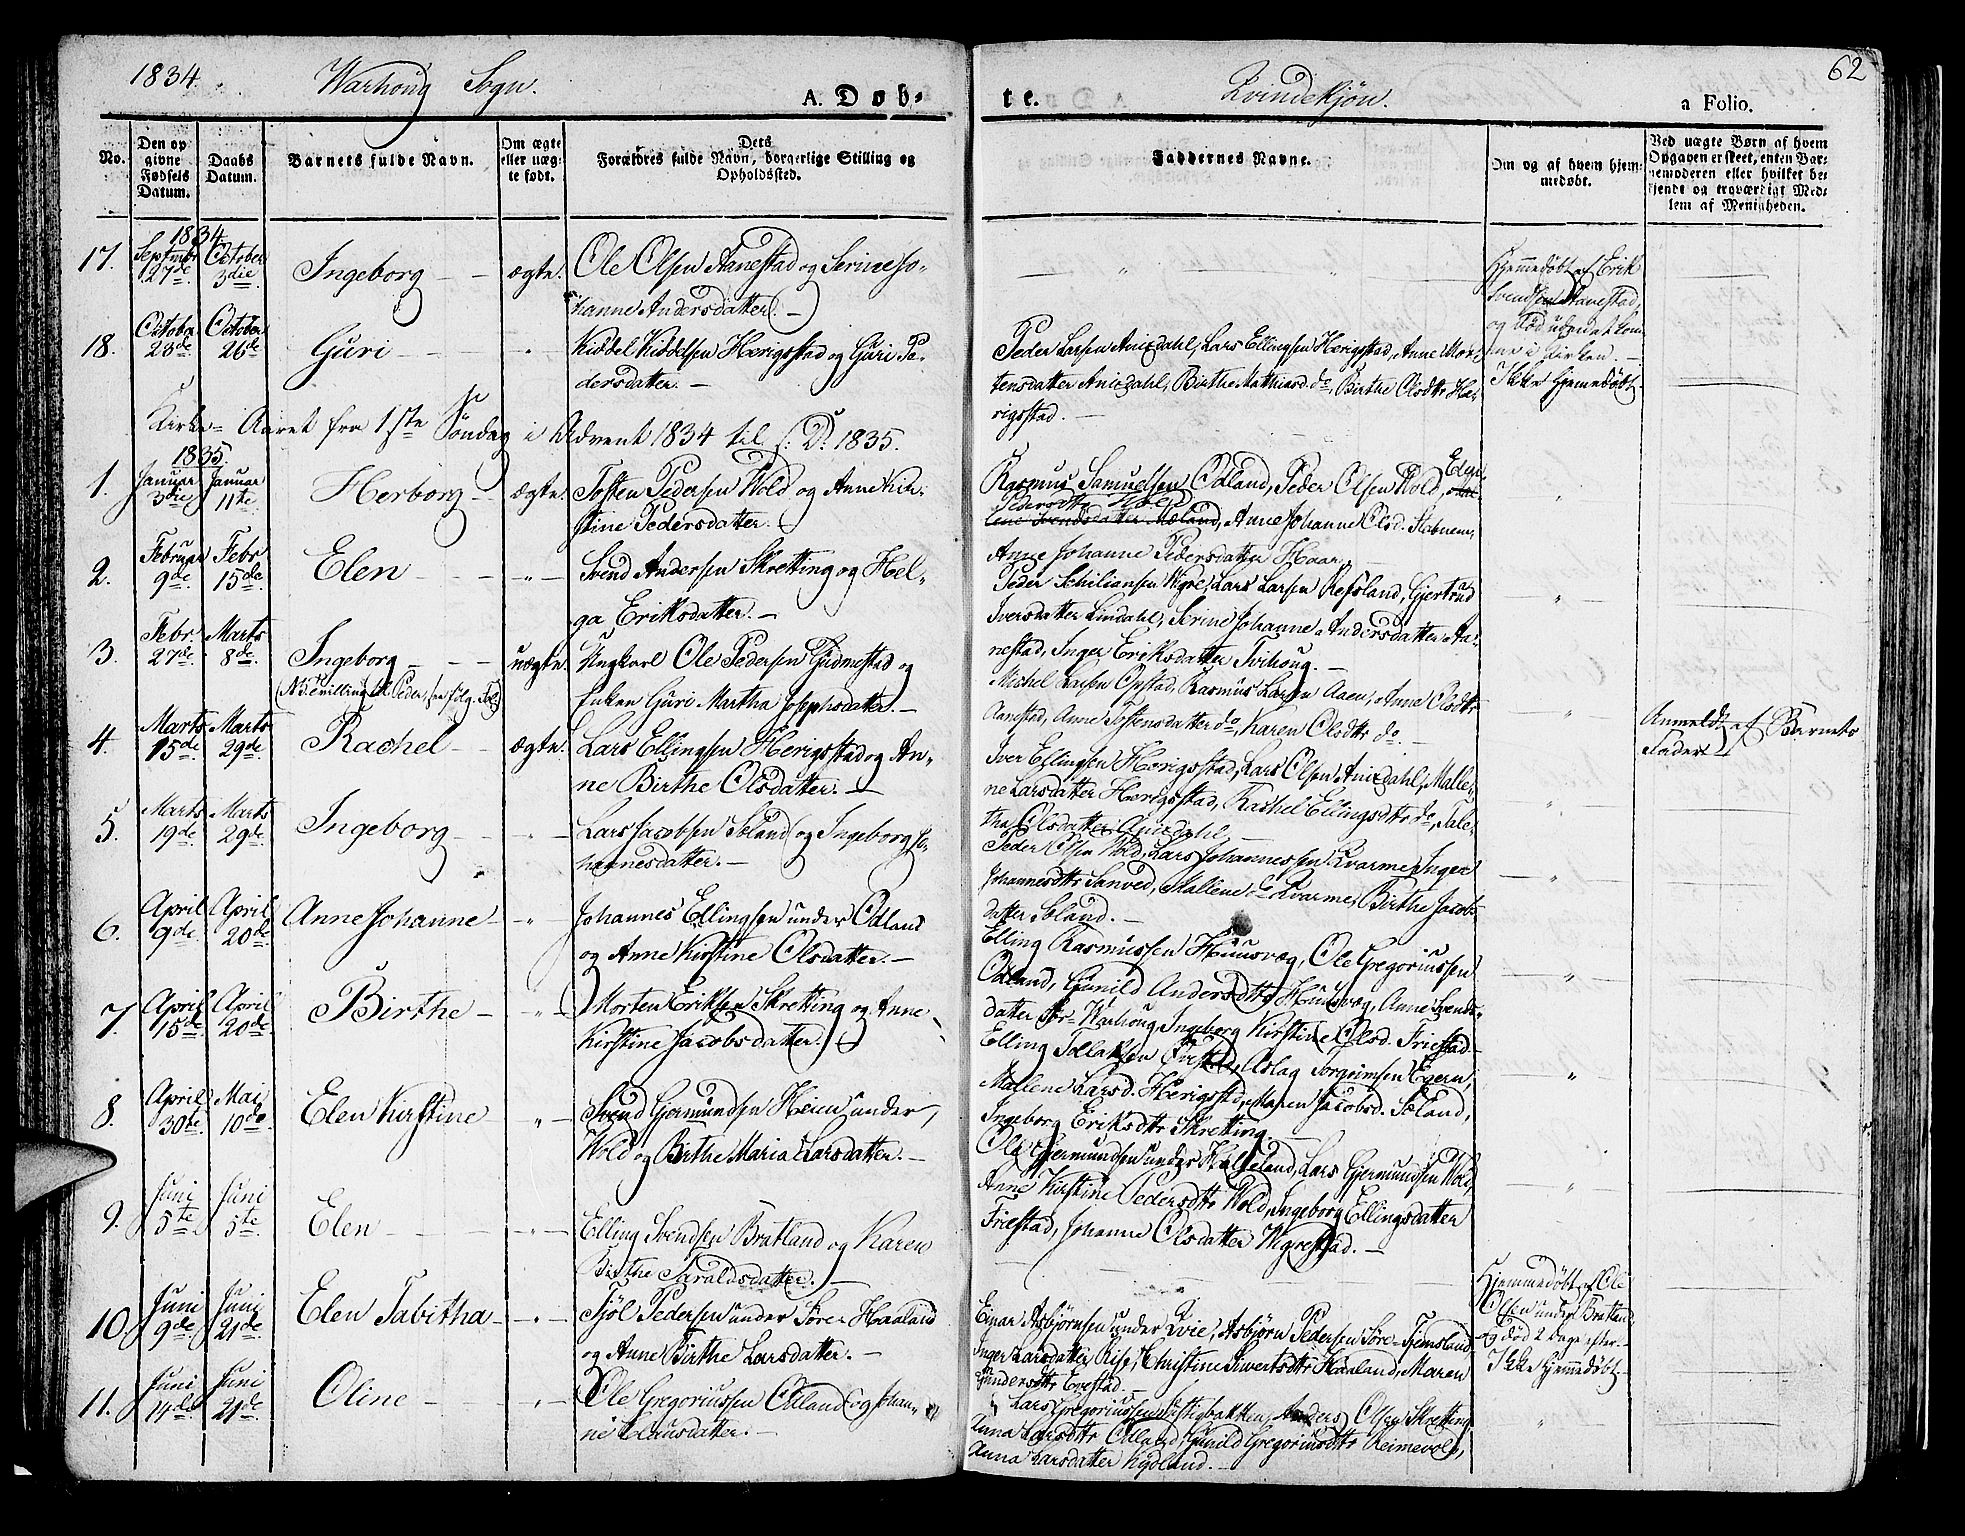 1834. Warhoug Sogn.
A. Døb-
te.
Qvindekjøn.
a Folio.
62
No.
Den op
givne
Fødsels
Datum.
Daabs
Datum.
Barnets fulde Navn.
Om ægte
eller uæg-
te født.
Dets
Forældres fulde Navn, borgerlige Stilling og
Opholdssted.
Faddernes Navne.
Om og af hvem hjem-
medøbt.
Ved uægte Børn af hvem
Opgaven er skeet, enten Bar-
nemoderen eller hvilket be-
kjendt og troværdigt Med-
lem af Menigheden.
1834
17. Septembr 27de October 3die Ingeborg ægte. Ole Olsen Aanestad og Serine Jo-
hanne Andersdatter. —
Hjemmedøbt af Erik
Svendsen Aanestad,
og død uden at kom-
me i Kirken. —
18. October 23de October 26de Guri " Kiddel Kiddelsen Hærigstad og Guri Pe-
dersdatter. —
Peder Larsen Anixdahl, Lars Ellingsen Hærigstad, Anne Mor-
tensdatter Anixdahl, Birthe Mathiasd. do, Birthe Olsdtr Hæ-
rigstad. —
Ikke hjemmedøbt
Kirke-Aaret fra 1ste Søndag i Advent 1834 til S. D. 1835.
1835.
1. Januar 3die Januar 11te Herborg ægte. Tosten Pedersen Wold og Anne Kir-
stine Pedersdatter. —
Rasmus Samuelsen Odland, Peder Olsen Wold,
Svendsdatter Æland, Anne Johanne Olsd. Stabnem,
Anne Johanne Pedersdatter Haar. —
2. Februar 9de Febr. 15de Elen " Svend Andersen Skretting og Hel-
ga Eriksdatter. —
Peder Schiliansen Wigre, Lars Larsen Refsland, Gjertrud
Iversdatter Lindahl, Serine Johanne Andersdatter Aa-
nestad, Inger Eriksdatter Tvihoug. —
3. Febr. 27de Marts 8de Ingeborg uægte. Ungkarl Ole Pedersen Gudmestad og
(NB. tvilling til Peder, see følg. Fol.)
Enken Guri Martha Josephsdatter. —
Michel Larsen Opstad, Rasmus Larsen Aaen, Anne Olsdtr
Aanestad, Anne Tostensdatter do, Karen Olsdtr do. —
Anmeldt af Barnets
Fader
4. Marts 15de Marts 29de Rachel ægte. Lars Ellingsen Hærigstad og An-
ne Birthe Olsdatter. —
Iver Ellingsen Hærigstad, Lars Olsen Anixdahl, Malle-
ne Larsdatter Hærigstad, Rachel Ellingsdtr do, Tale-
tha Olsdatter Anixdahl. —
5. Marts 19de Marts 29de Ingeborg " Lars Jacobsen Æland og Ingeborg Jo-
hannesdatter. —
Peder Olsen Wold, Lars Johannessen Kvarme, Inger
Johannesdtr Sanved, Mallene do Kvarme, Birthe Jacobs
datter Æland. —
6. April 9de April 20de Anne Johanne " Johannes Ellingsen under Odland
og Anne Kirstine Olsdatter. —
Elling Rasmussen Huusvæg, Ole Gregoriussen
Odland, Gunild Andersdtr Huusvæg, Anne Svends-
datter Sør-Warhoug, Ingeborg Kirstine Olsd. Friestad
7. April 15de April 20de Birthe " Morten Eriksen Skretting og Anne
Kirstine Jacobsdatter.
Elling Tollaksen Friestad, Aslag Torgrimsen Egern,
Mallene Larsd. Hærigstad, Maren Jacobsd. Sæland,
Ingeborg Eriksdtr Skretting. —
8. April 30te Mai 10de Elen Kirstine " Svend Gjermundsen Heien under
Wold og Birthe Maria Larsdatter. —
Ole Gjermundsen under Hælleland, Lars Gjermundsen Wold,
Anne Kirstine Pedersdtr Wold, Ingeborg Ellingsdatter
Friestad, Johanne Olsdatter Wigrestad. —
9. Juni 5te Juni 5te Elen " Elling Svendsen Bratland og Karen
Birthe Taraldsdatter. —
Hjemmedøbt af Ole
Olsen under Bratland,
og død 2 Dage efter. —
10. Juni 9de Juni 21de Elen Tabitha " Fjøl Pedersen under Søre-Haaland
og Anne Birthe Larsdatter. —
Einar Asbjørnsen under Qvie, Asbjørn Pedersen Søre-Fjemsland,
Inger Larsdatter Riis, Christine Siwertsdtr Haaland, Maren
Gundersdtr
Ikke hjemmedøbt
11. Juni 14de Juni 21de Oline " Ole Gregoriussen Odland og Johan-
ne Clausdatter. —
Lars Gregoriussen Anders Olsen Skretting,
Anna Larsdtr Odland, Gunild Gregoriusdtr Reimevold,
Anna Larsdatter Kydland. —